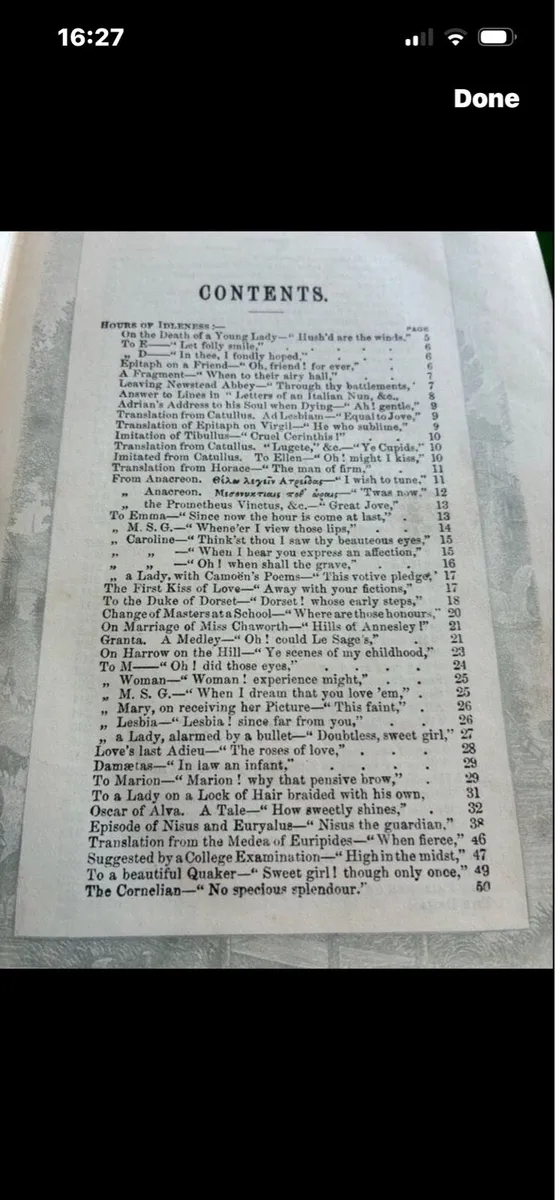 16:27
Done
CONTENTS.
HOURS OF IDLENESS:—
PAGE
On the Death of a Young Lady—“ Hush'd are the winds,” 5
To E——“ Let folly smile,” . . . . . 6
„ D——“ In thee, I fondly hoped,” . . . 6
Epitaph on a Friend—“ Oh, friend ! for ever,” . . 6
A Fragment—“ When to their airy hall,” . . 7
Leaving Newstead Abbey—“ Through thy battlements,’ 7
Answer to Lines in “ Letters of an Italian Nun, &c., 8
Adrian's Address to his Soul when Dying—“ Ah! gentle,” 9
Translation from Catullus. Ad Lesbiam—“Equal to Jove,” 9
Translation of Epitaph on Virgil—“ He who sublime,” 9
Imitation of Tibullus—“ Cruel Cerinthis !” . 10
Translation from Catullus. “Lugete,” &c.—“Ye Cupids,” 10
Imitated from Catullus. To Ellen—“ Oh ! might I kiss,” 10
Translation from Horace—“ The man of firm,” . 11
From Anacreon. Θέλω λεγεῖν Ατρείδας—“ I wish to tune,” 11
„ Anacreon. Μεσονυκτιαις ποθ’ ὥραις—“ 'Twas now,” 12
„ the Prometheus Vinctus, &c.—“ Great Jove,” 13
To Emma—“ Since now the hour is come at last,” . 13
„ M. S. G.—“ Whene'er I view those lips,” . . 14
„ Caroline—“ Think'st thou I saw thy beauteous eyes,” 15
„ „ —“ When I hear you express an affection,” 15
„ „ —“ Oh ! when shall the grave,” . . 16
„ a Lady, with Camoën's Poems—“ This votive pledge,’ 17
The First Kiss of Love—“ Away with your fictions,” 17
To the Duke of Dorset—“ Dorset ! whose early steps,” 18
Change of Masters at a School—“ Where are those honours,” 20
On Marriage of Miss Chaworth—“ Hills of Annesley !” 21
Granta. A Medley—“ Oh ! could Le Sage's,” . 21
On Harrow on the Hill—“ Ye scenes of my childhood,” 23
To M——“ Oh ! did those eyes,” . . . . 24
„ Woman—“ Woman ! experience might,” . . 25
„ M. S. G.—“ When I dream that you love 'em,” . 25
„ Mary, on receiving her Picture—“ This faint,” . 26
„ Lesbia—“ Lesbia ! since far from you,” . . 26
„ a Lady, alarmed by a bullet—“ Doubtless, sweet girl,” 27
Love's last Adieu—“ The roses of love,” . . . 28
Damætas—“ In law an infant,” . . . . 29
To Marion—“ Marion ! why that pensive brow,” . 29
To a Lady on a Lock of Hair braided with his own, 31
Oscar of Alva. A Tale—“ How sweetly shines,” . 32
Episode of Nisus and Euryalus—“ Nisus the guardian,” 38
Translation from the Medea of Euripides—“ When fierce,” 46
Suggested by a College Examination—“ High in the midst,” 47
To a beautiful Quaker—“ Sweet girl ! though only once,” 49
The Cornelian—“ No specious splendour.” 50